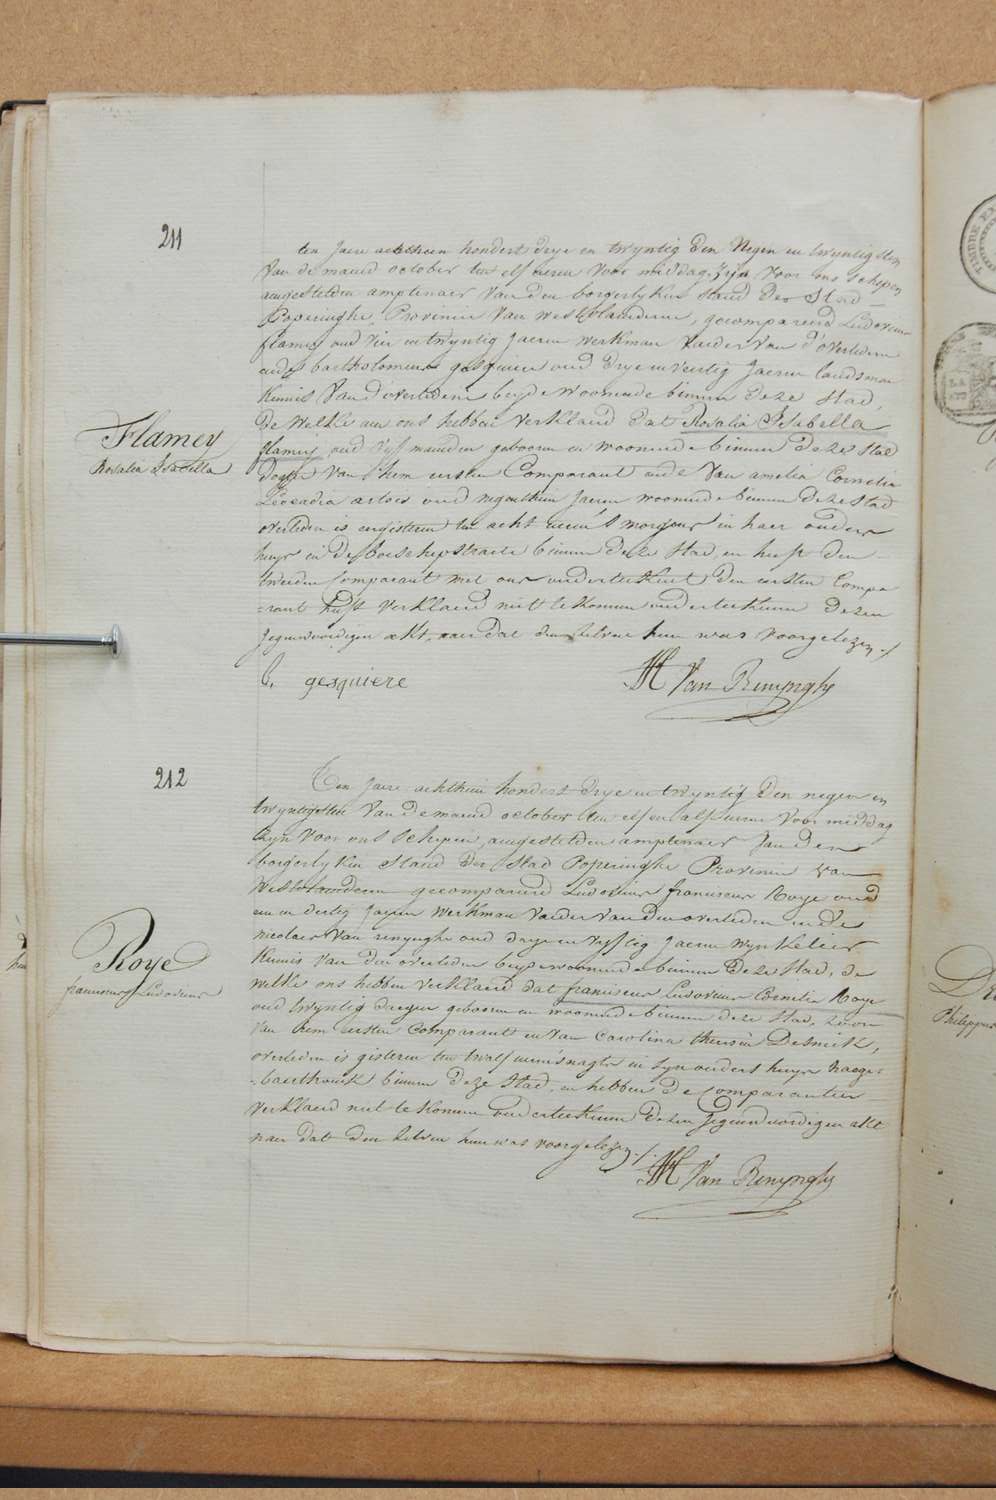 211
ten Jaere achthien hondert drye en twyntig den Negen en twyntigsten
Van de maend october ten elf uren voor middag, zyn voor ons schepen
aengestelden amptenaer van den borgerlyken stand der Stad
Poperinghe, Provincie van Westvlaenderen, gecompareerd Ludovicus
flamey oud vier en twyntig Jaeren werkman vaeder van d'overledene
ende bartholomeus gesquiere oud drye en veertig Jaeren landsman
Kennis van d'overledene beyde woonende binnen deze Stad,
de welke aen ons hebben verklaerd dat Rosalia Isabella
Flamey
flamey oud vyf maenden geboren en woonende binnen deze stad
Rosalia Isabella
dogter van hem eersten Comparant ende van amelia Cornelia
Leocadia artois oud negenthien Jaeren woonende binnen deze Stad
overleden is eergisteren ten acht uren 's morgens in haer ouders
huys in de boeschepstraete binnen deze stad, en heeft den
tweeden Comparant met ons onderteekent den eersten Compa
=rant heeft verklaerd niet te konnen onderteekenen dezen
Jegenwoordigen akt, naer dat den zelven hun was voorgelezen ./.
b. gesquiere
Van Renynghe
212
Ten Jaere achthien hondert drye en twyntig den negen en
twyntigsten Van de maend october ten elf en alf uren voor middag
Zyn voor ons schepen, aengestelden amptenaer van den
borgerlyken Stand der Stad Poperinghe Provincie van
Westvlaenderen gecompareerd Ludovicus franciscus Roye oud
een en dertig Jaeren werkman vaeder van den overleden ende
nicolaes Van renynghe oud drye en vyftig Jaeren wynkelier
Roye
Kennis van den overleden beyde woonende binnen deze Stad, de
franciscus Ludovicus
welke ons hebben verklaerd dat franciscus Ludovicus Cornelis Roye
oud twyntig daegen geboren en woonende binnen deze stad, zoon
Van hem eersten Comparant en van Carolina theresia Desmedt,
overleden is gisteren ten twalf uren 's nagts in syn ouders huys haege-
=baerthouck binnen deze Stad, en hebben de Comparanten
verklaerd niet te konnen onderteekenen dezen Jegenwoordigen akt
naer dat den zelven hun was voorgelezen ./.
Van Renynghe
Philippus